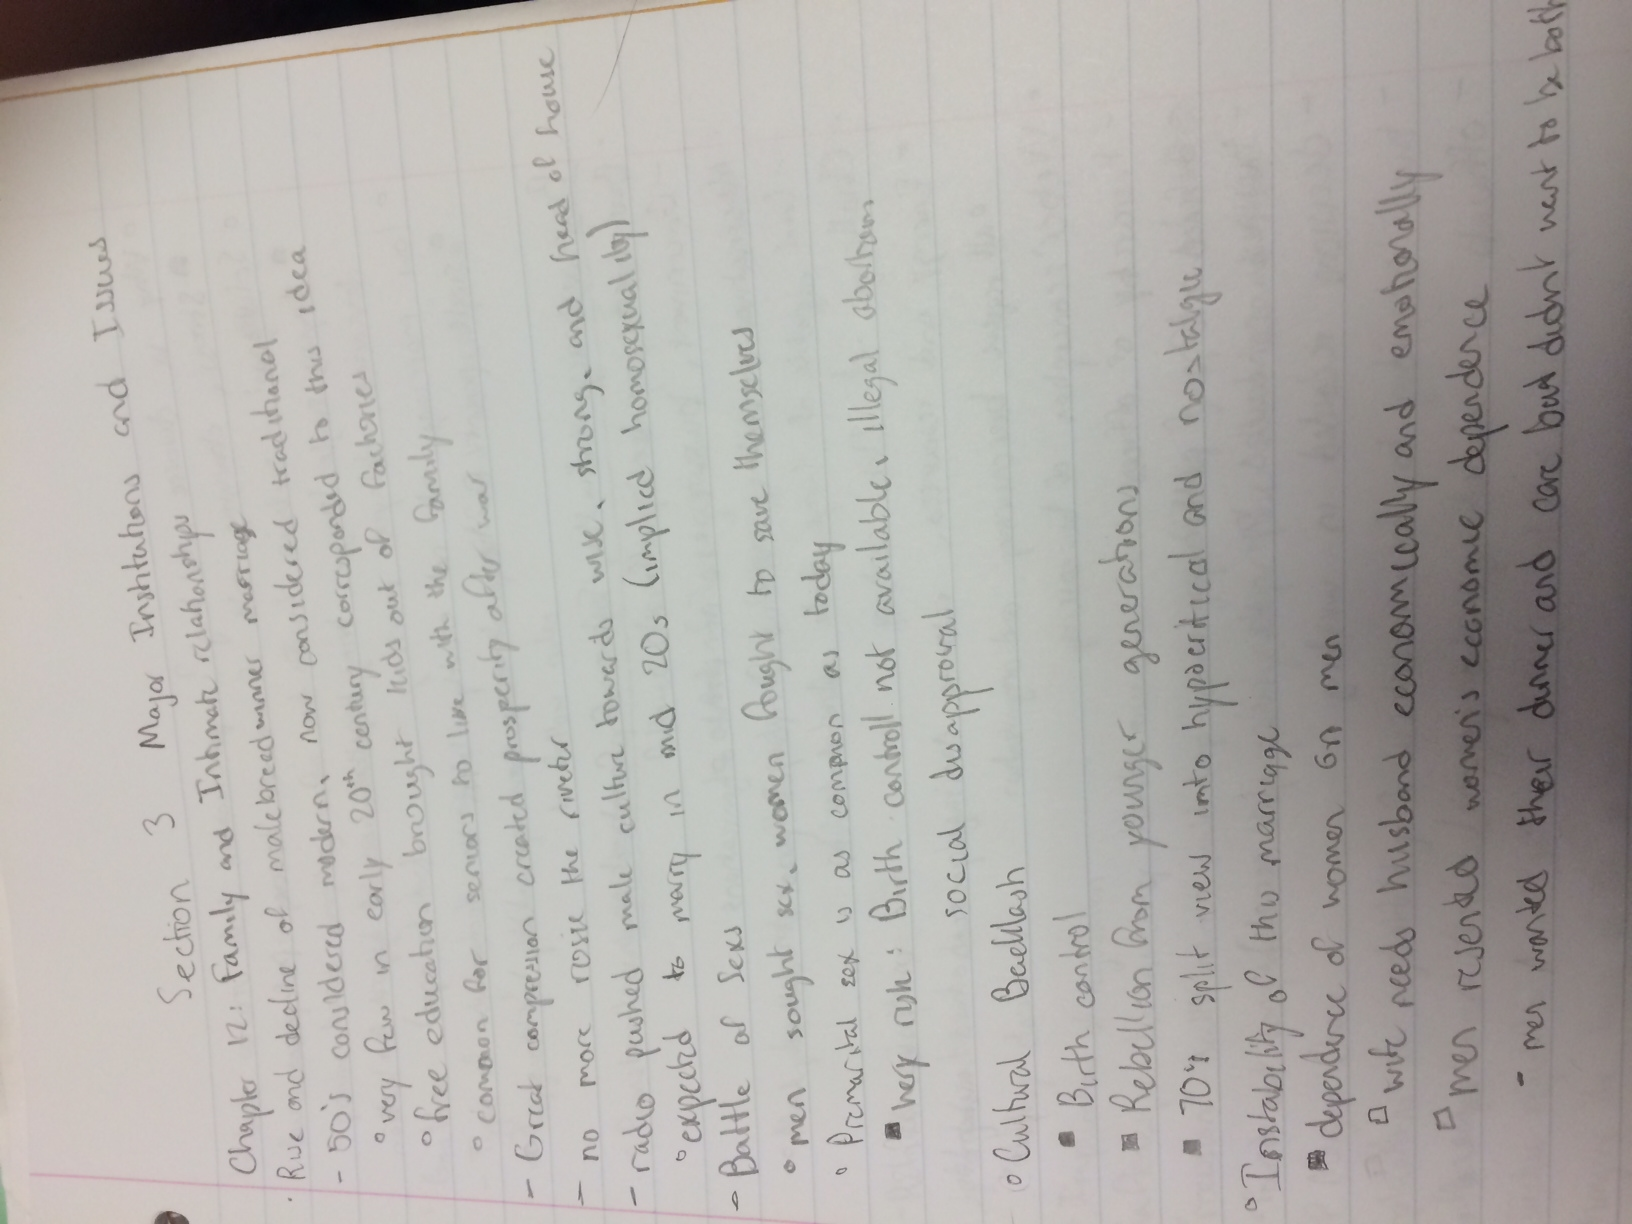 Section 3 Major Institutions and Issues
Chapter 12: Family and Intimate relationships
· Rise and decline of male breadwinner marriage
- 50's considered modern, now considered traditional
° very few in early 20th century corresponded to this idea
° free education brought kids out of factories
° common for seniors to live with the family
- Great compression created prosperity after war
- no more rosie the riveter
- radio pushed male culture towards wise, strong, and head of house
° expected to marry in mid 20s (implied homosexuality)
- Battle of Sexs
° men sought sex, women fought to save themselves
° Primarital sex is as common as today
▪ very rish: Birth controll not available, illegal abortions
social disapproval
° Cultural Backlash
▪ Birth control
▪ Rebellion from younger generations
▪ 70's split view into hyporitical and nostalgie
° Instability of this marriage
▪ dependence of women on men
□ wife needs husband economically and emotionally
□ men resented women's economic dependence
- men wanted their dinner and care but didnt want to be both